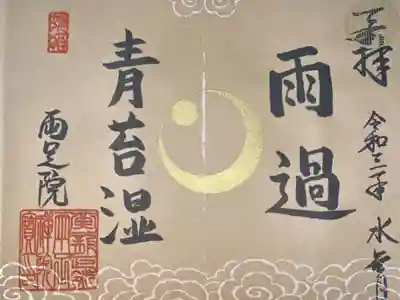 奉拝
令和三年 水無月
雨過
青苔湿
兩足院